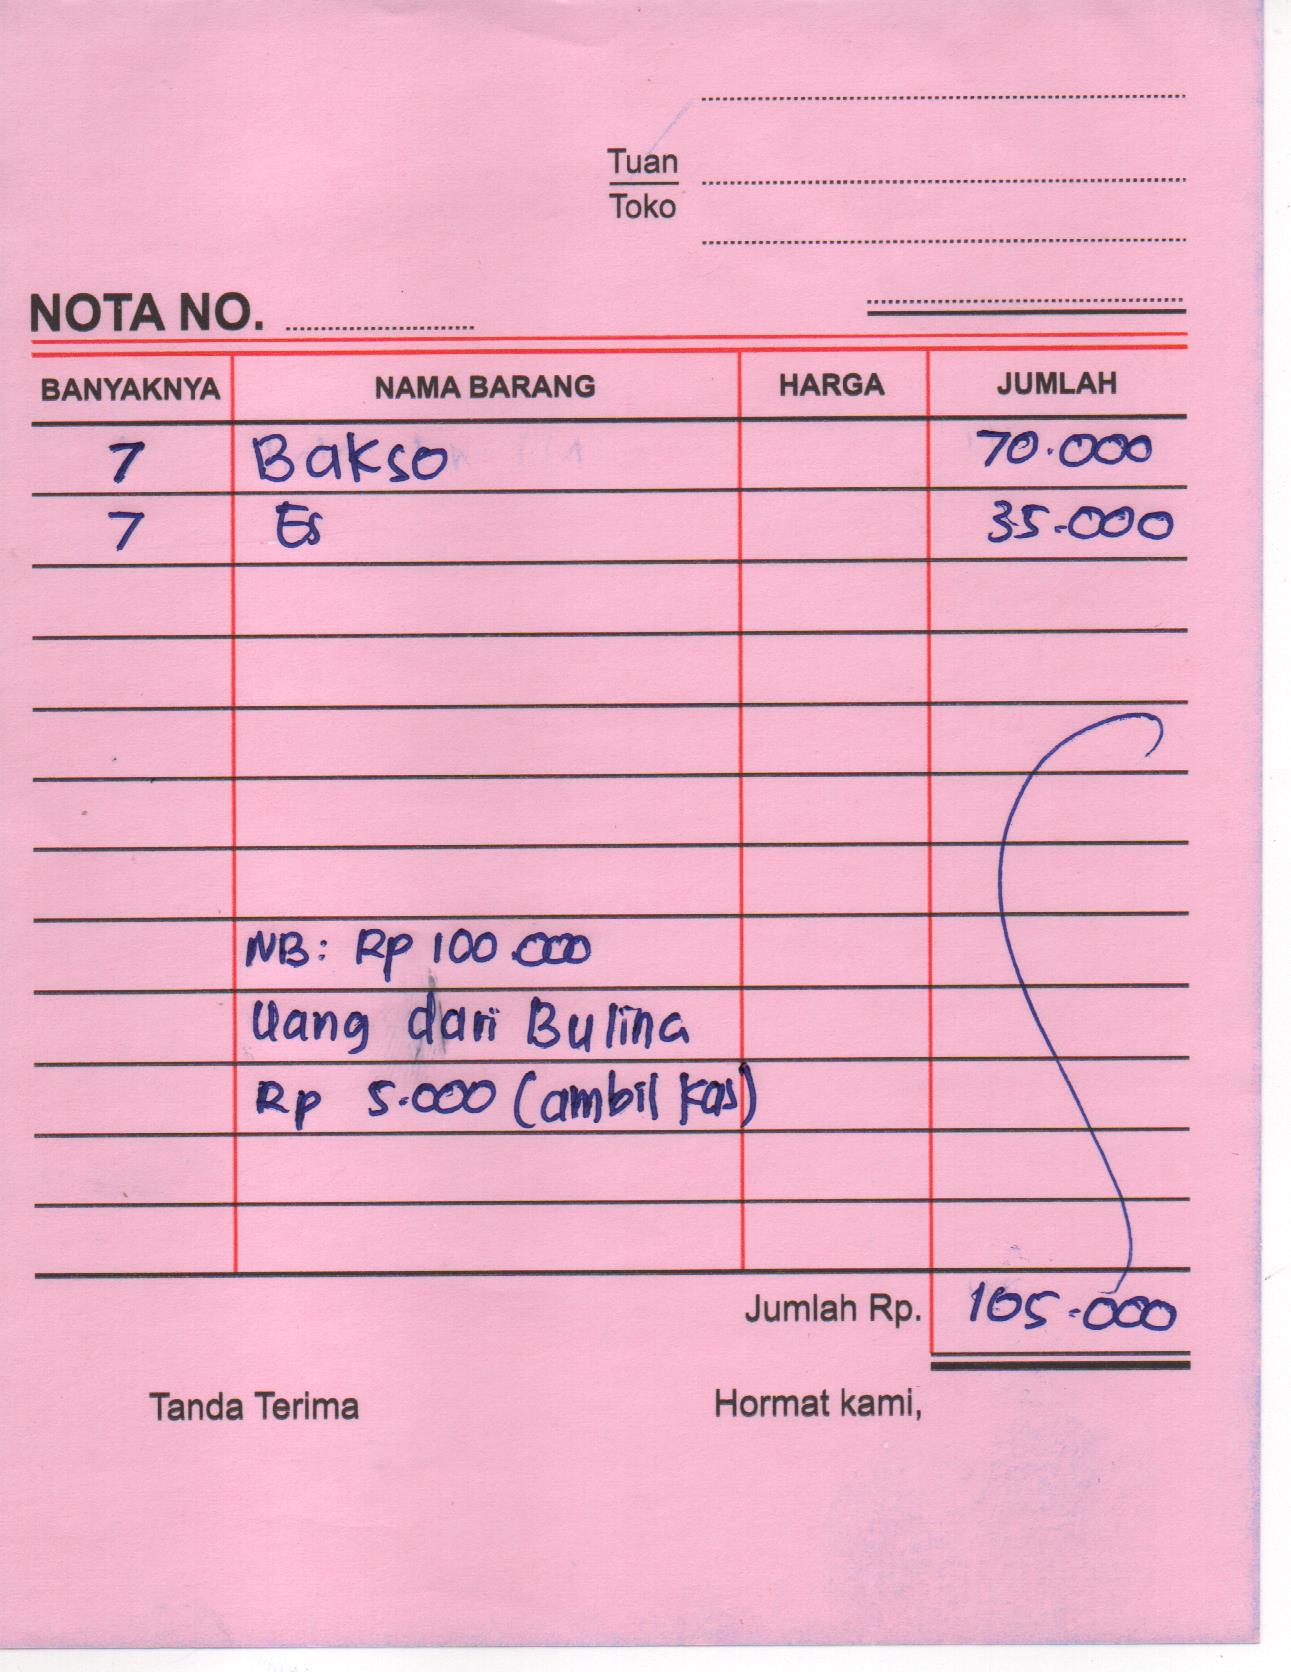 Tuan
Toko
NOTA NO.
BANYAKNYA NAMA BARANG HARGA JUMLAH
7 Bakso 70.000
7 Es 35.000
NB: Rp 100.000
Uang dari Bulina
Rp 5.000 (ambil kas)
Jumlah Rp. 105.000
Tanda Terima Hormat kami,